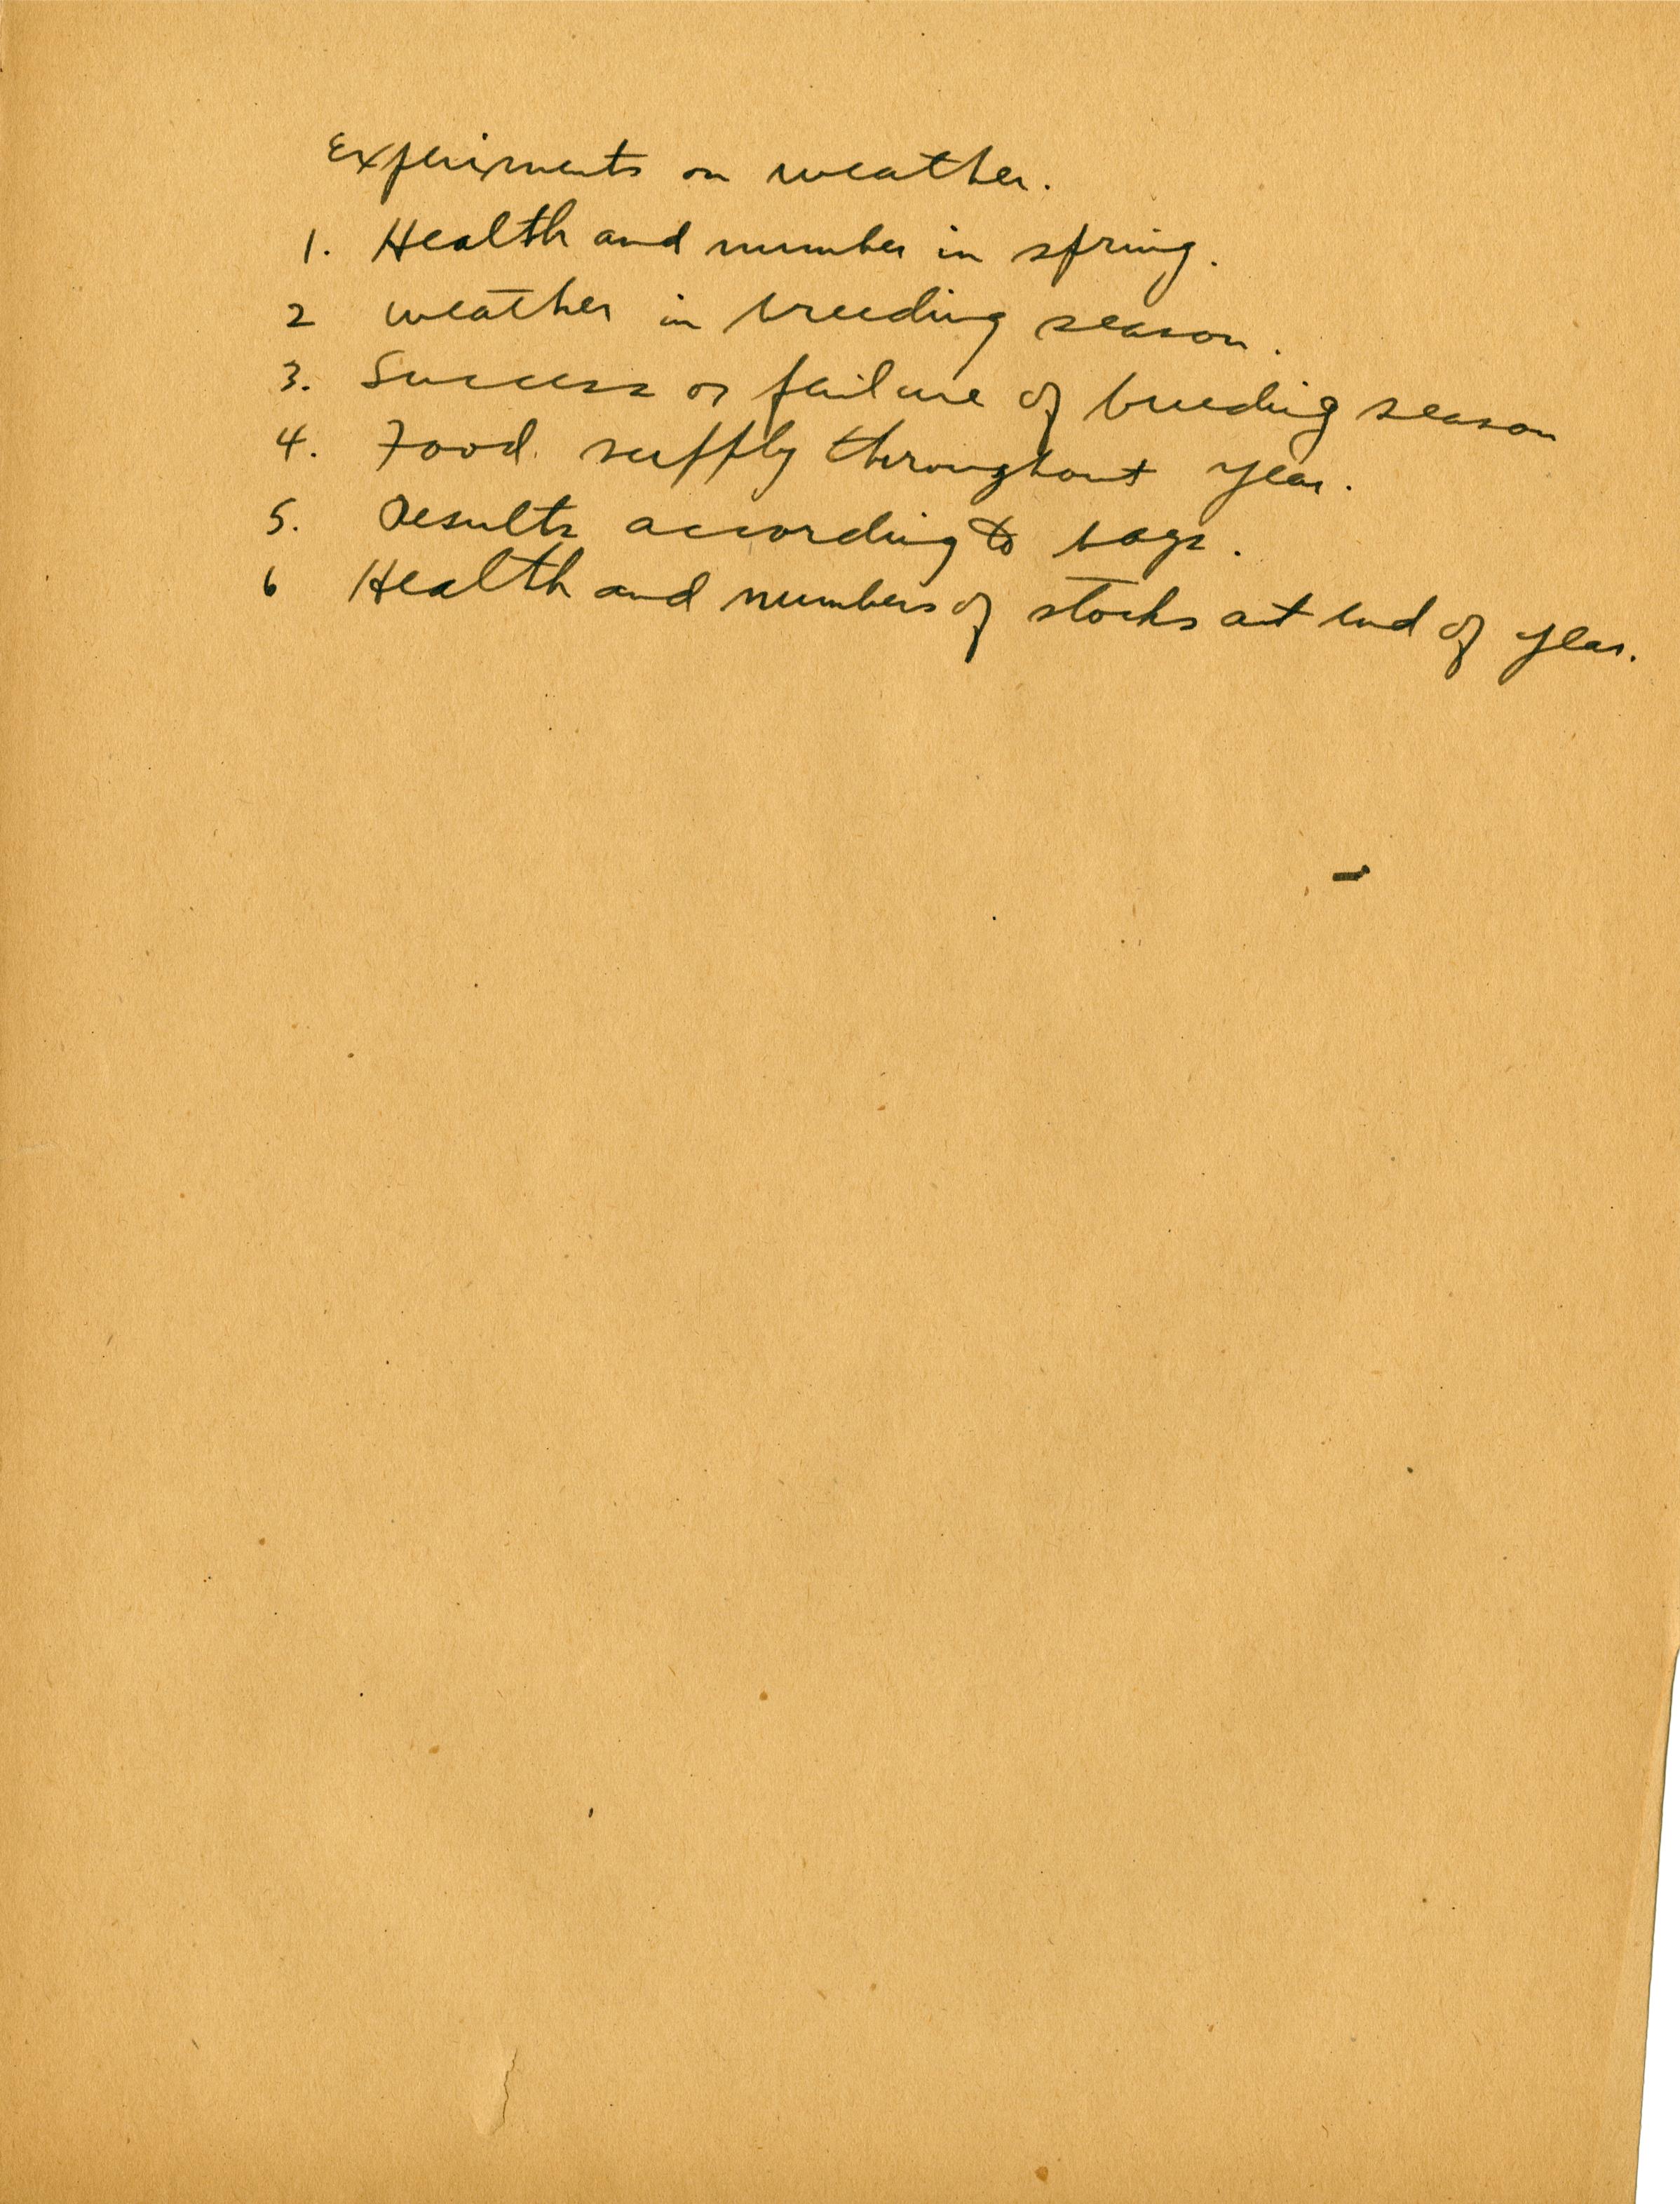 Experiments on weather.
1. Health and number in spring.
2 weather in breeding season.
3. Success or failure of breeding season
4. Food supply throughout year.
5. Results according to bags.
6 Health and numbers of stocks at end of year.